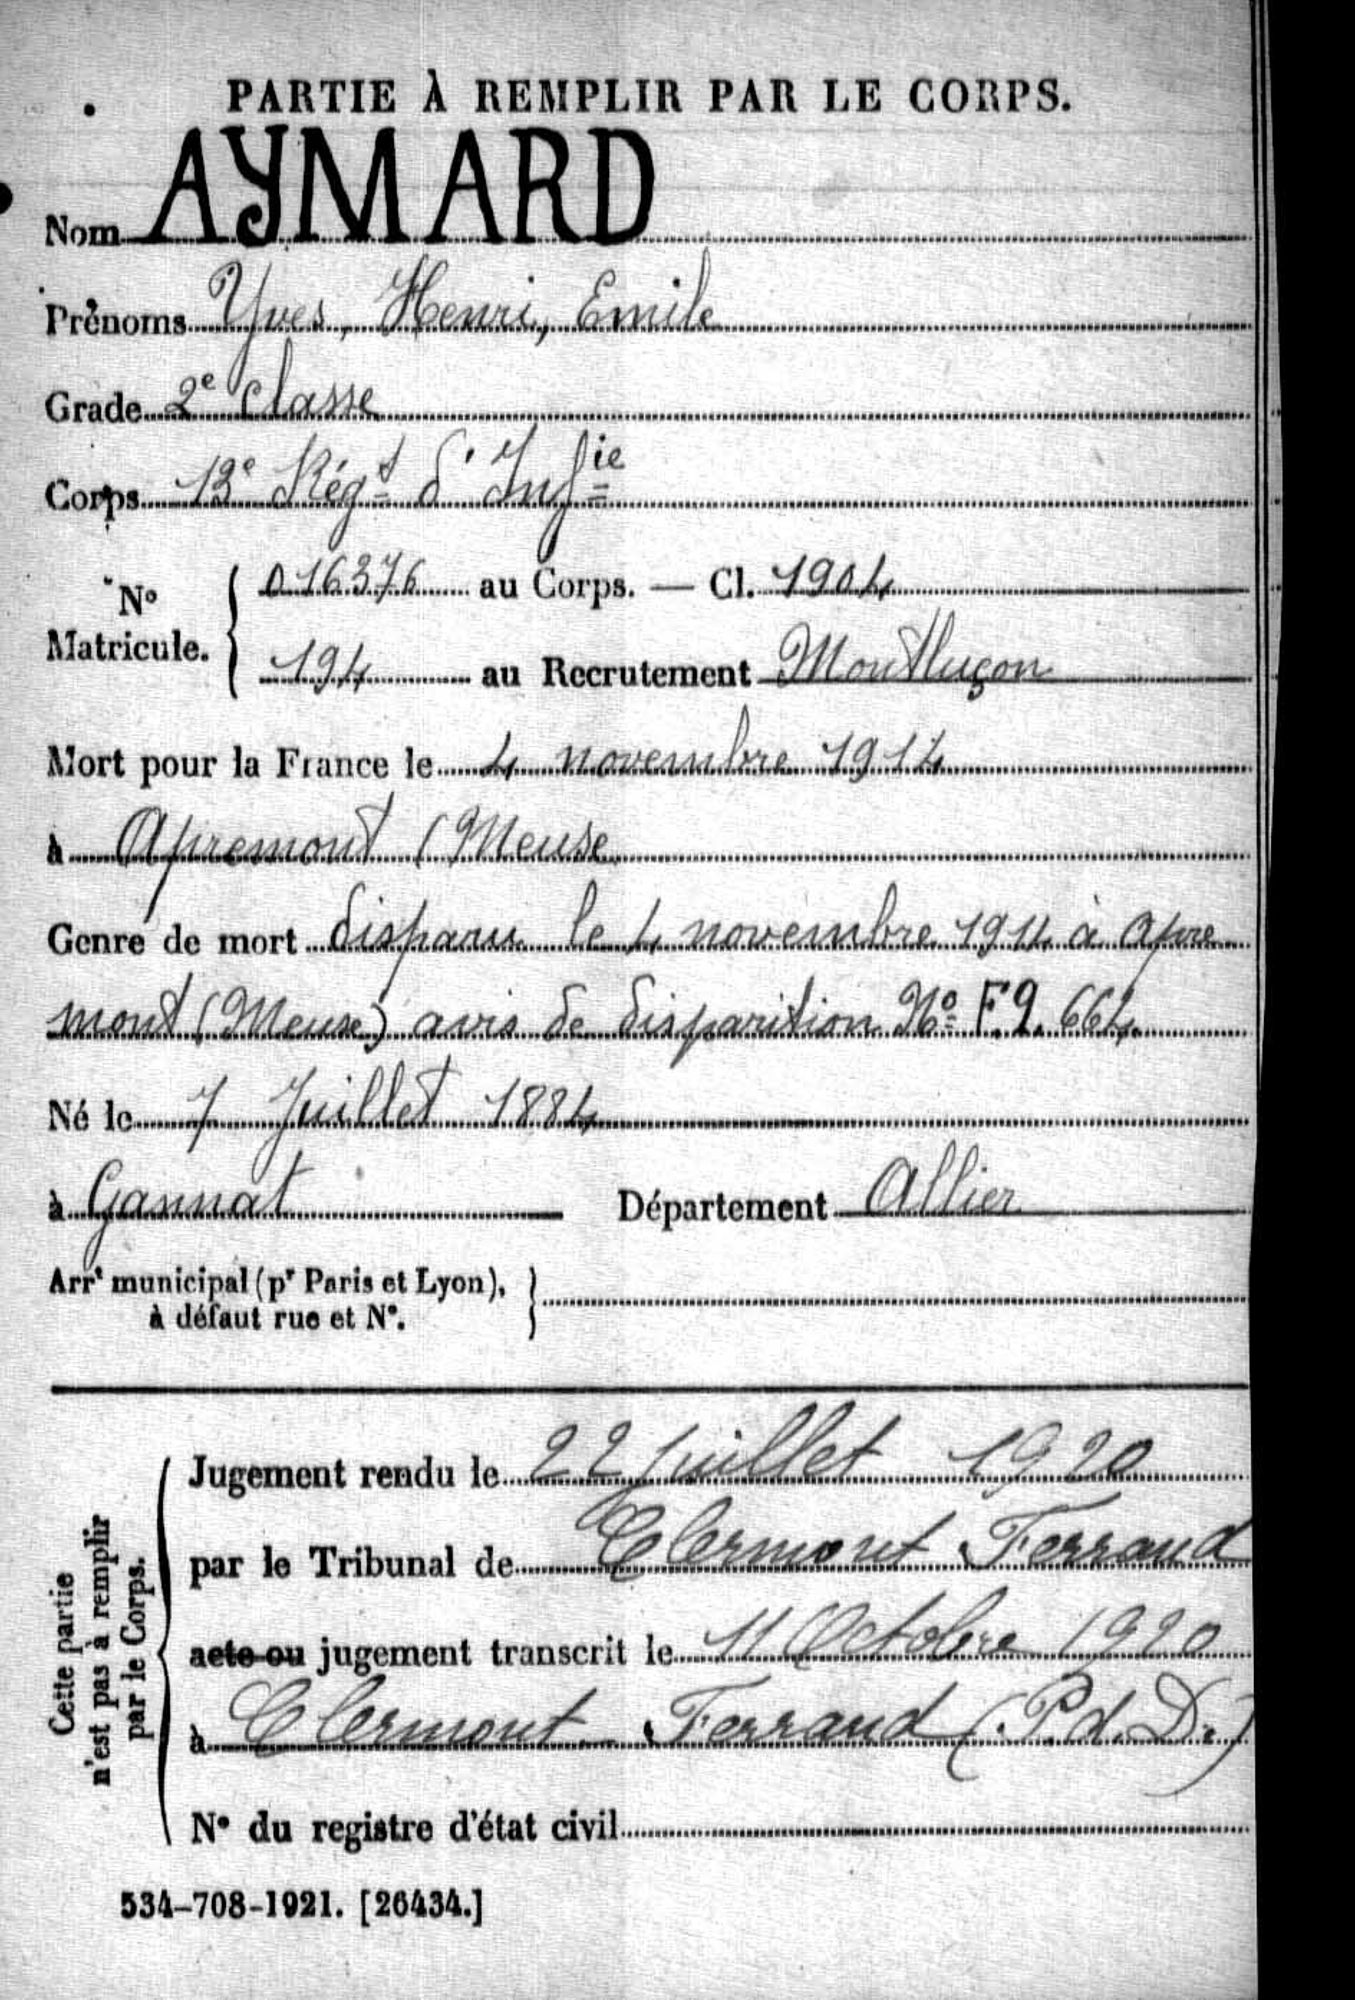 PARTIE À REMPLIR PAR LE CORPS.
Nom AYMARD
Prénoms Yves, Henri, Emile
Grade 2e classe
Corps 13e Régt d'Infie
No Matricule. { 016376 au Corps. — Cl. 1904
194 au Recrutement Montluçon
Mort pour la France le 4 novembre 1914
à Apremont (Meuse
Genre de mort disparu le 4 novembre 1914 à Apre
mont (Meuse) avis de disparition No F.9. 664.
Né le 7 Juillet 1884
à Gannat Département Allier
Arrt municipal (pr Paris et Lyon),
à défaut rue et No.
Cette partie
n'est pas à remplir
par le Corps.
Jugement rendu le 22 juillet 1920
par le Tribunal de Clermont Ferrand
acte ou jugement transcrit le 11 Octobre 1920
à Clermont-Ferrand (P.d.D.)
No du registre d'état civil
534-708-1921. [26434.]